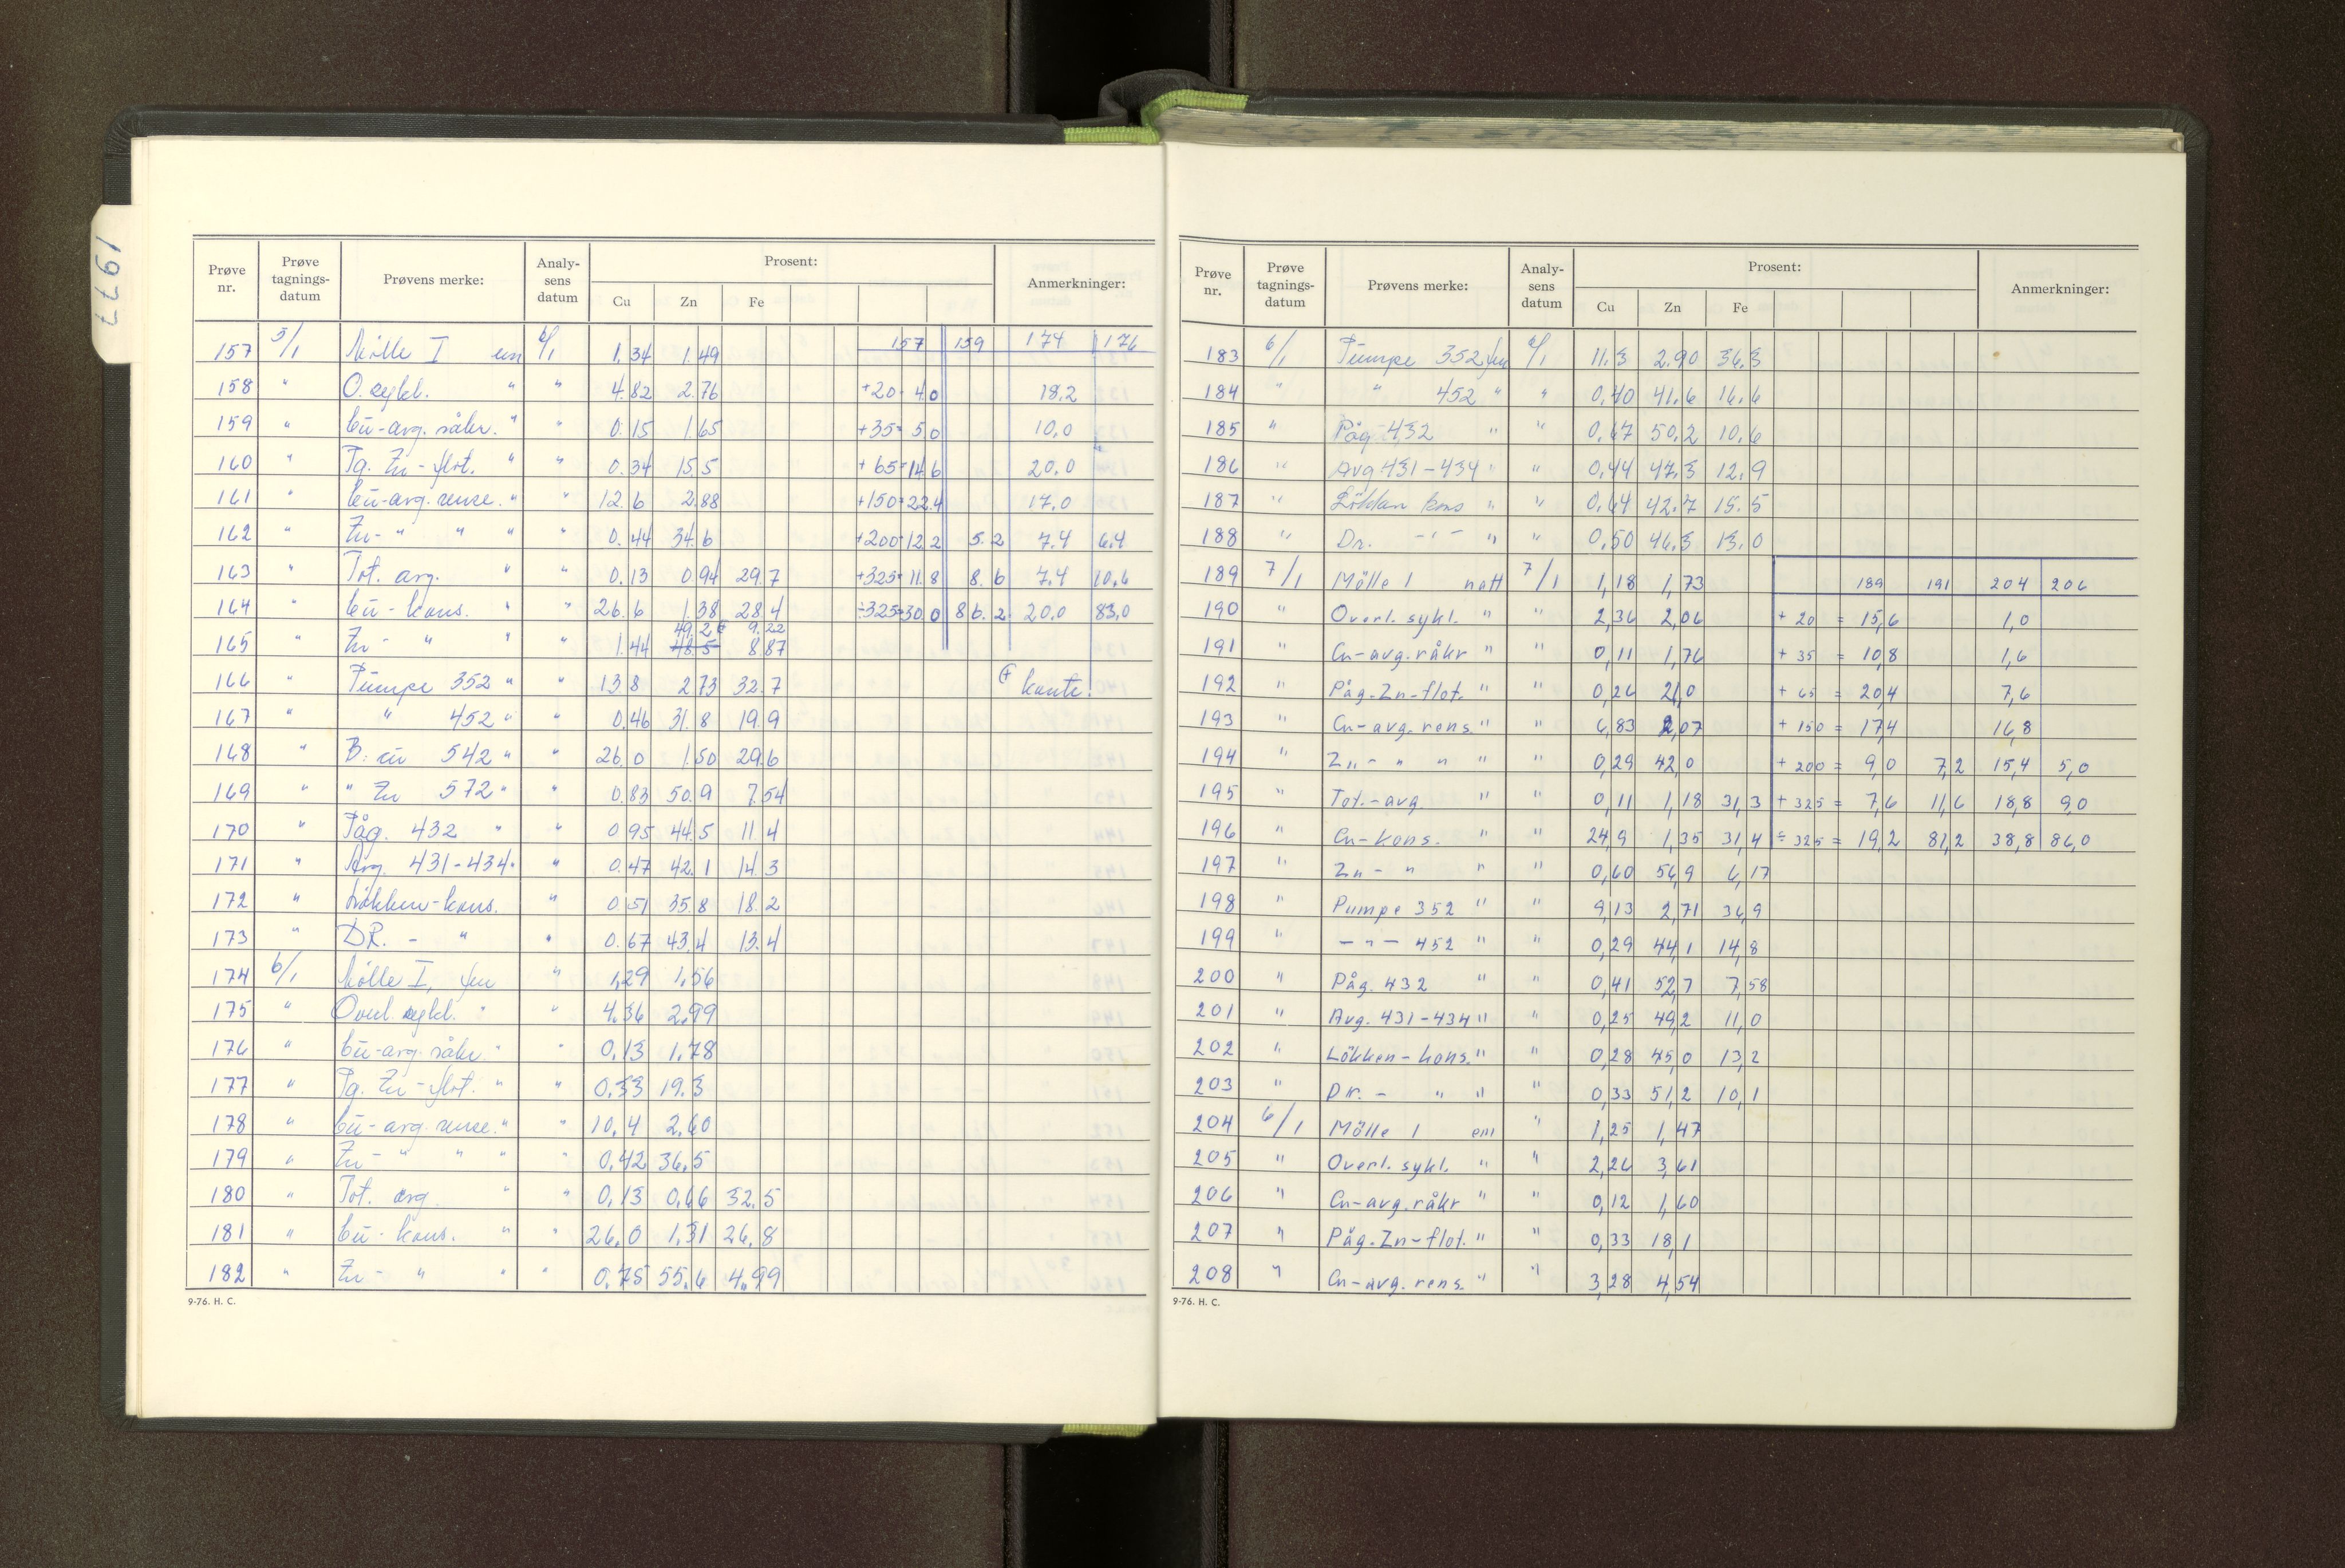 1977
Prøve nr. Prøve tagnings-datum Prøvens merke: Analy-sens datum Prosent: Anmerkninger:
Cu Zn Fe
157 5/1 Mölle I em 6/1 1.34 1.49 157 159 174 176
158 " O. sykl. " " 4.82 2.76 +20= 4.0 18,2
159 " Cu-avg. råkr. " " 0.15 1.65 +35= 5.0 10,0
160 " Pg. Zn-flot. " " 0.34 15.5 +65= 14.6 20,0
161 " Cu-avg. rense. " " 12.6 2.88 +150= 22.4 17,0
162 " Zn- " " " " 0.44 34.6 +200= 12.2 5.2 7,4 6,4
163 " Tot. avg. " " 0.13 0.94 29.7 +325= 11.8 8.6 7,4 10,6
164 " Cu-kons. " " 26.6 1.38 28.4 ÷325= 30.0 86.2 20,0 83,0
49.2 9.22
165 " Zn- " " " 1.44 48.5 8.87
166 " Pumpe 352 " " 13.8 2.73 32.7 kontr.
167 " " 452 " " 0.46 31.8 19.9
168 " B: cu 542 " " 26.0 1.50 29.6
169 " " Zn 572 " " 0.83 50.9 7.54
170 " Påg. 432 " " 0.95 44.5 11.4
171 " Avg. 431-434 " " 0.47 42.1 14.3
172 " Løkken-kons. " 0.51 35.8 18.2
173 " DR. - " " 0.67 43.4 13.4
174 6/1 Mölle I, fm " 1,29 1,56
175 " Overl. sykl. " " 4,36 2,99
176 " Cu-avg. råkr. " " 0,13 1,78
177 " Pg. Zn-flot. " " 0,33 19,3
178 " Cu-avg. rense. " " 10,4 2,60
179 " Zn- " " " " 0,42 36,5
180 " Tot. avg. " " 0,13 0,66 32,5
181 " Cu-kons. " " 26,0 1,31 26,8
182 " Zn- " " " 0,75 55,6 4,99
9-76. H. C.
Prøve nr. Prøve tagnings-datum Prøvens merke: Analy-sens datum Prosent: Anmerkninger:
Cu Zn Fe
183 6/1 Pumpe 352 fm 6/1 11,3 2,90 36,3
184 " " 452 " " 0,40 41,6 16,6
185 " Påg 432 " " 0,67 50,2 10,6
186 " Avg 431-434 " " 0,44 47,3 12,9
187 " Lökken kons " " 0,64 42,7 15,5
188 " Dr. -"- " " 0,50 46,3 13,0
189 7/1 Mölle 1 natt 7/1 1,18 1,73 189 191 204 206
190 " Overl. sykl. " " 2,36 2,06 + 20 = 15,6 1,0
191 " Cu-avg. råkr " " 0,11 1,76 + 35 = 10,8 1,6
192 " Påg. Zn-flot. " " 0,26 21,0 + 65 = 20,4 7,6
193 " Cu-avg. rens. " " 6,83 2,07 + 150 = 17,4 16,8
194 " Zn- " " " " 0,29 42,0 + 200 = 9,0 7,2 15,4 5,0
195 " Tot.-avg. " " 0,11 1,18 31,3 + 325 = 7,6 11,6 18,8 9,0
196 " Cu-kons. " " 24,9 1,35 31,4 ÷ 325 = 19,2 81,2 38,8 86,0
197 " Zn- " " " 0,60 56,9 6,17
198 " Pumpe 352 " " 9,13 2,71 36,9
199 " -"- 452 " " 0,29 44,1 14,8
200 " Påg. 432 " " 0,41 52,7 7,58
201 " Avg. 431-434 " " 0,25 49,2 11,0
202 " Lökken-kons. " " 0,28 45,0 13,2
203 " Dr. - " " " 0,33 51,2 10,1
204 6/1 Mölle 1 em " 1,25 1,47
205 " Overl. sykl. " " 2,26 3,61
206 " Cu-avg. råkr " " 0,12 1,60
207 " Påg. Zn-flot. " " 0,33 18,1
208 " Cu-avg. rens. " " 3,28 4,54
9-76. H. C.